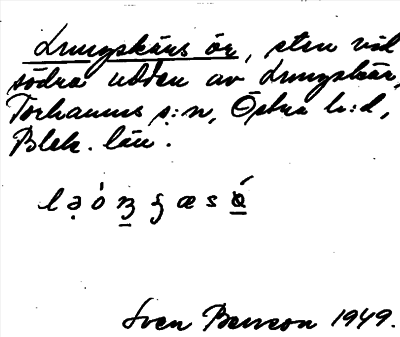 Lrungskärs ör, sten vid
södra udden av Lrungskär,
Torhamns s:n, Östra h:d,
Blek. län.
Sven Benson 1949.